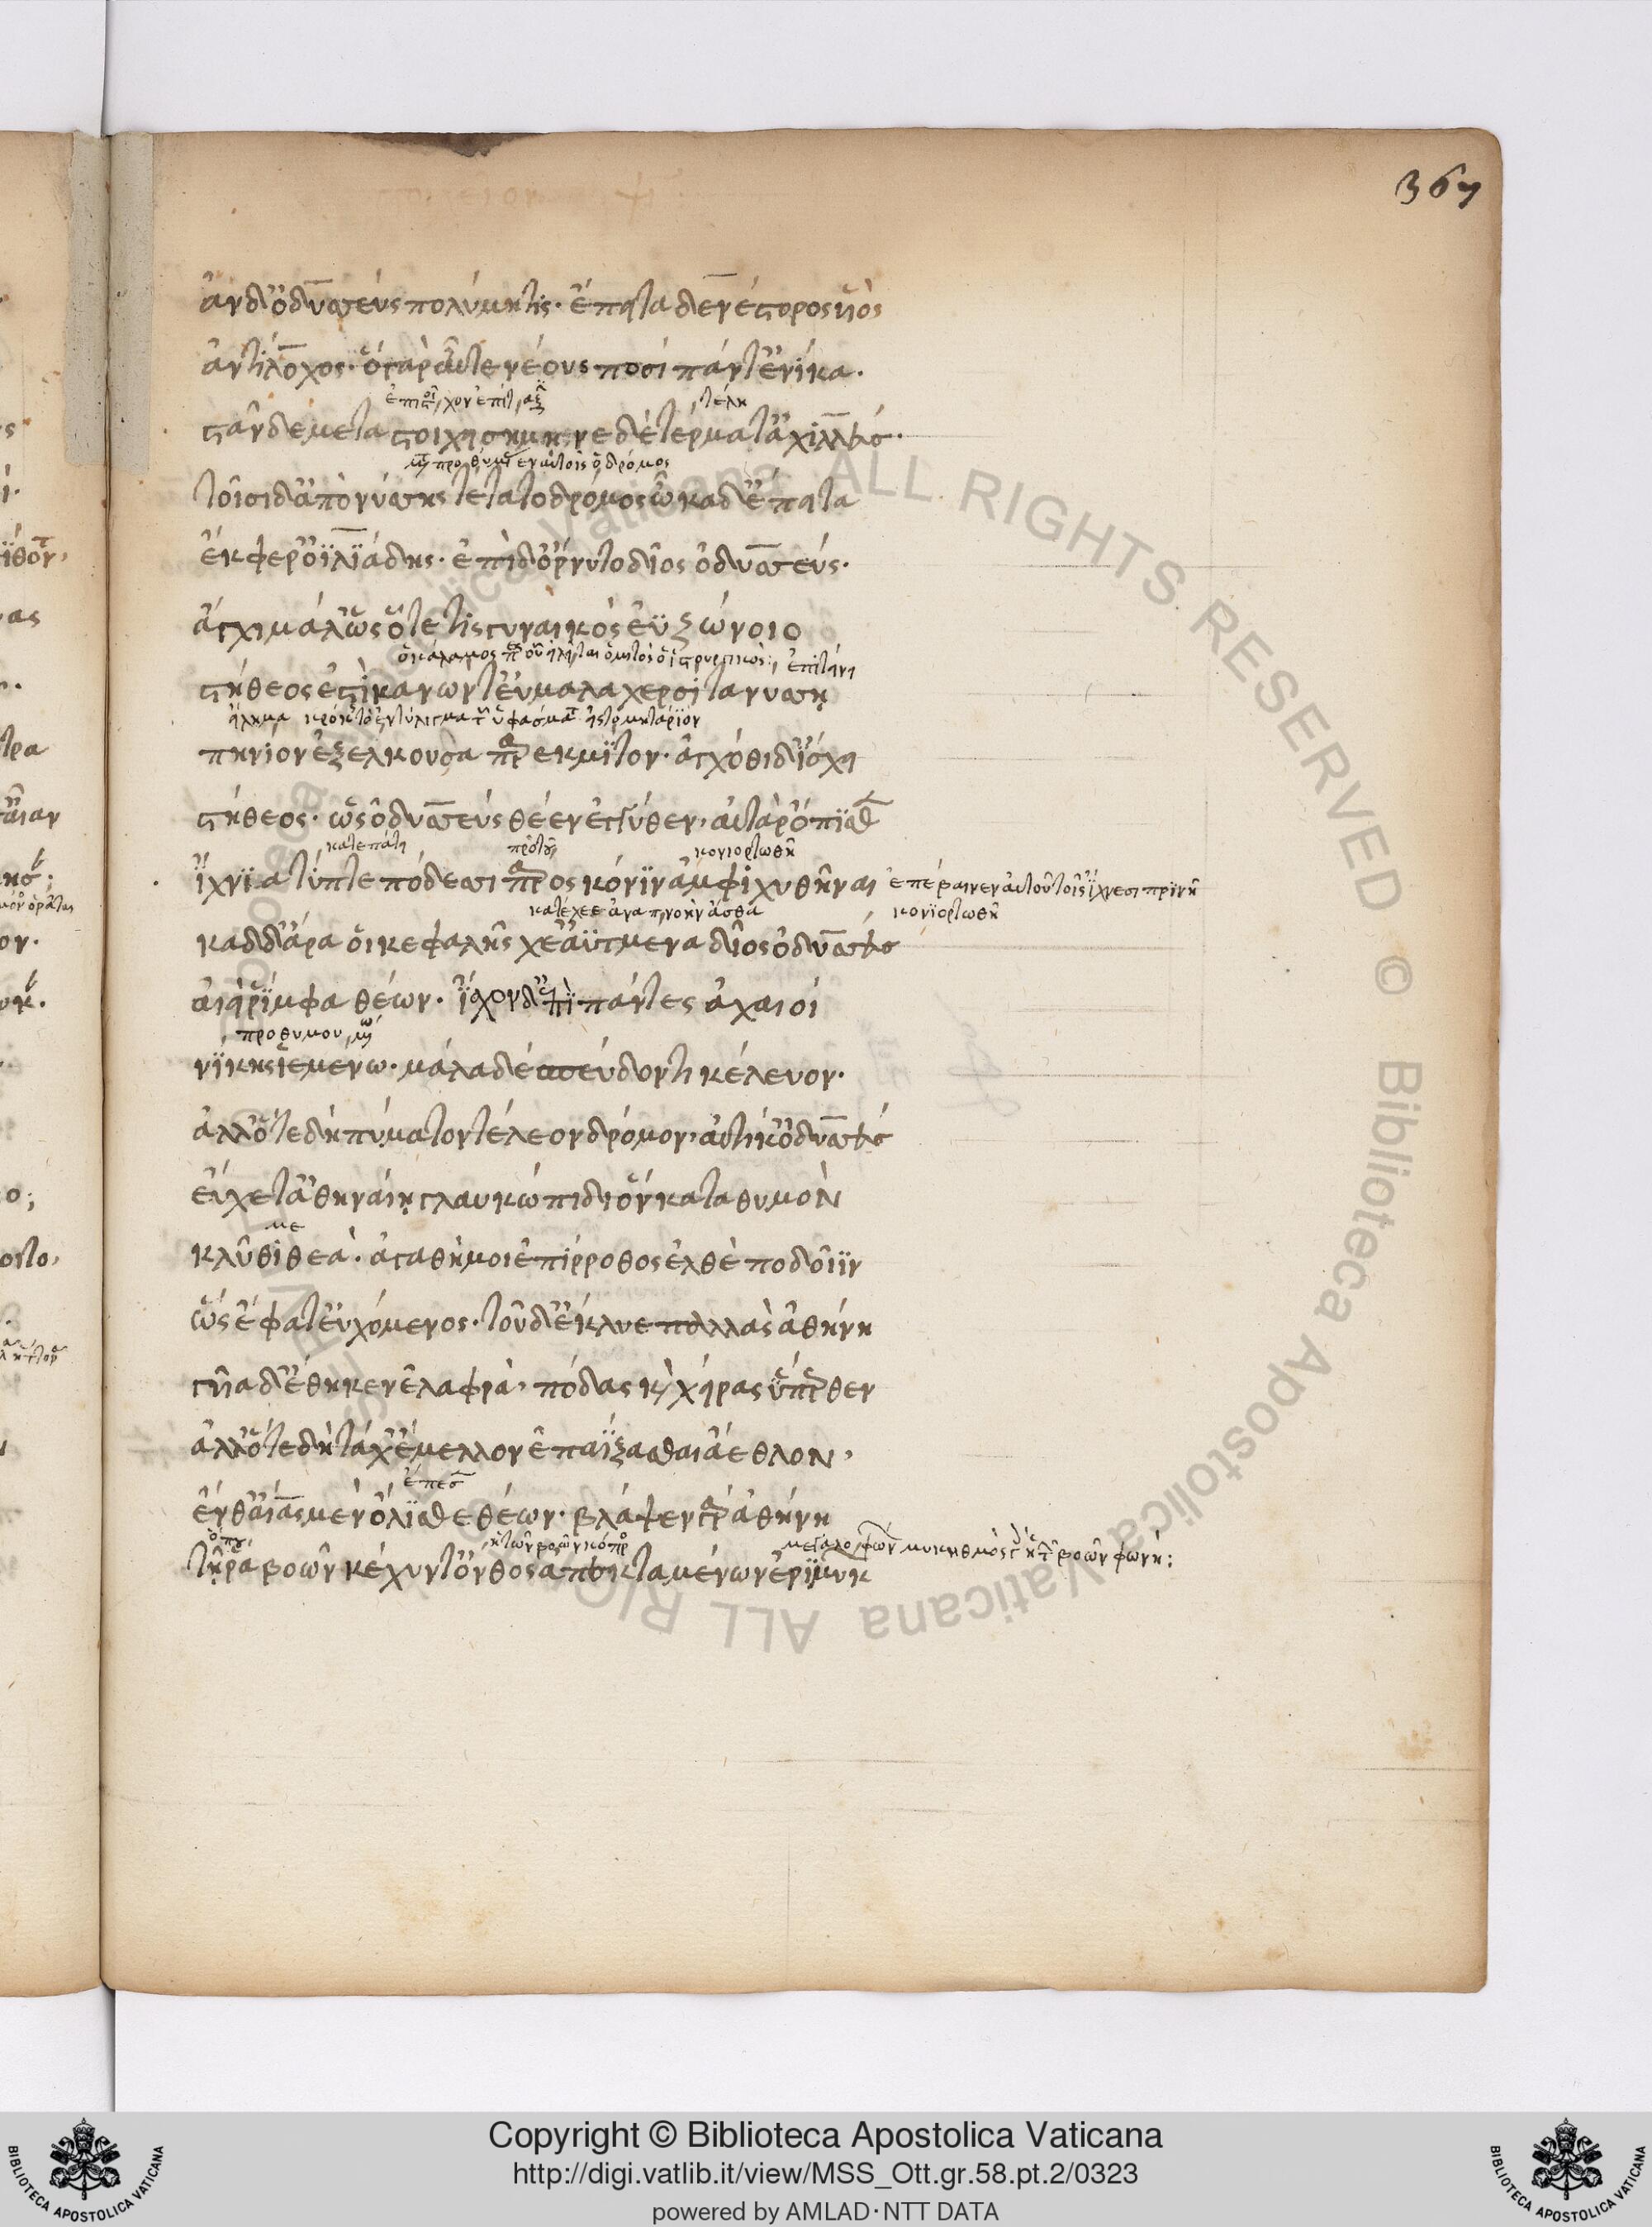 367
ἂν δ' ὀδυσσεὺς πολύμητις. ἔπειτα δὲ νέστορος υἱὸς
ἀντίλοχος. ὁ γὰρ αὖτε νέους ποσὶ πάντ' ἐνίκα.
τέλη
στὰν δὲ μεταστοιχεὶ σήμηνε δὲ τέρματ' ἀχιλλεύς.
ἐν αὐτοῖς ὁ δρόμος
τοῖσι δ' ἀπὸ νύσσης τέτατο δρόμος ὦκα δ' ἔπειτα
ἔκφερ' ὀϊλιάδης. ἐπὶ δ' ὄρνυτο δῖος ὀδυσσεύς.
ἄγχι μάλ' ὡς ὅτε τίς τε γυναικὸς ἐϋζώνοιο
ὁ κάλαμος
στήθεός ἐστι κανὼν τ' εὖ μάλα χερσὶ τανύσσῃ
πηνίον ἐξέλκουσα παρὲκ μίτον. ἀγχόθι δ' ἴσχει
στήθεος. ὡς ὀδυσσεὺς θέεν ἐγγύθεν, αὐτὰρ ὄπισθεν
κατεπάτει κονιορτωθῆ
ἴχνια τύπτε πόδεσσι πάρος κόνιν ἀμφιχυθῆναι
ἐπέβαινεν αὐτοῦ τοῖς ἴχνεσι πρινὴ
κονιορτωθῆ
καδδ' ἄρα οἱ κεφαλῆς χέ' ἀϋτμένα δῖος ὀδυσσεὺς
αἰεὶ ῥίμφα θέων. ἴαχον δ' ἐπὶ πάντες ἀχαιοί
προθυμουμένω
νίκης ἱεμένω. μάλα δὲ σπεύδοντι κέλευον.
ἀλλ' ὅτε δὴ πύματον τέλεον δρόμον, αὐτίκ' ὀδυσσεὺς
εὔχετ' ἀθηναίῃ γλαυκώπιδι ὃν κατὰ θυμὸν
με
κλῦθι θεά. ἀγαθή μοι ἐπίρροθος ἐλθὲ ποδοῖιν
ὣς ἔφατ' εὐχόμενος. τοῦ δ' ἔκλυε παλλὰς ἀθήνη
γυῖα δ' ἔθηκεν ἐλαφρά, πόδας καὶ χεῖρας ὕπερθεν
ἀλλ' ὅτε δὴ τάχ' ἔμελλον ἐπαΐξασθαι ἄεθλον,
ἔπεσε
ἔνθ' αἴας μὲν ὄλισθε θέων. βλάψεν γὰρ ἀθήνη
ὅπου, ἡ τῶν βοῶν κόπρος
τῇ ῥα βοῶν κέχυτ' ὄνθος ἀποκταμένων ἐριμύκων
μυκηθμὸς γὰρ ἡ τῶν βοῶν φωνή:
Copyright © Biblioteca Apostolica Vaticana
http://digi.vatlib.it/view/MSS_Ott.gr.58.pt.2/0323
powered by AMLAD·NTT DATA